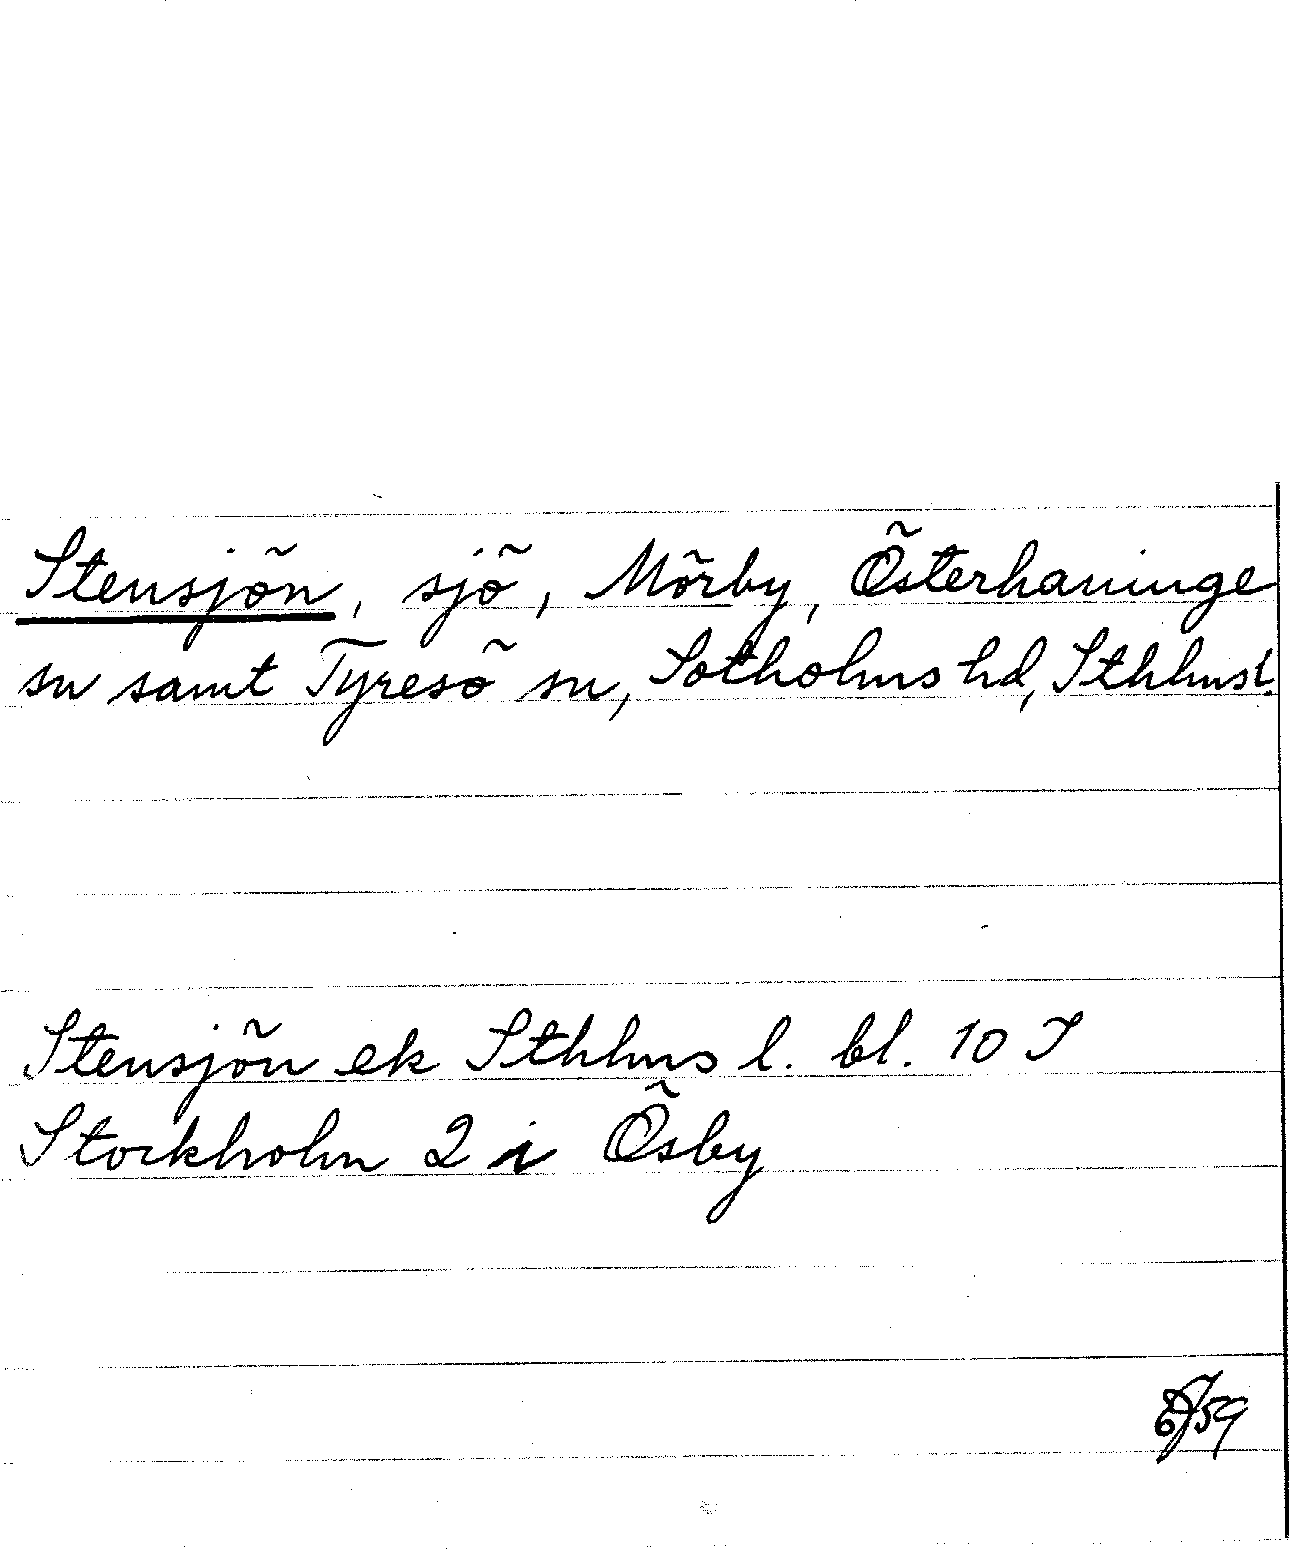 Stensjön, sjö, Mörby, Österhaninge
sn samt Tyresö sn, Sotholms hd, Sthlms l.
Stensjön ek Sthlms l. bl. 10 I
Stockholm 2 i Ösby
59